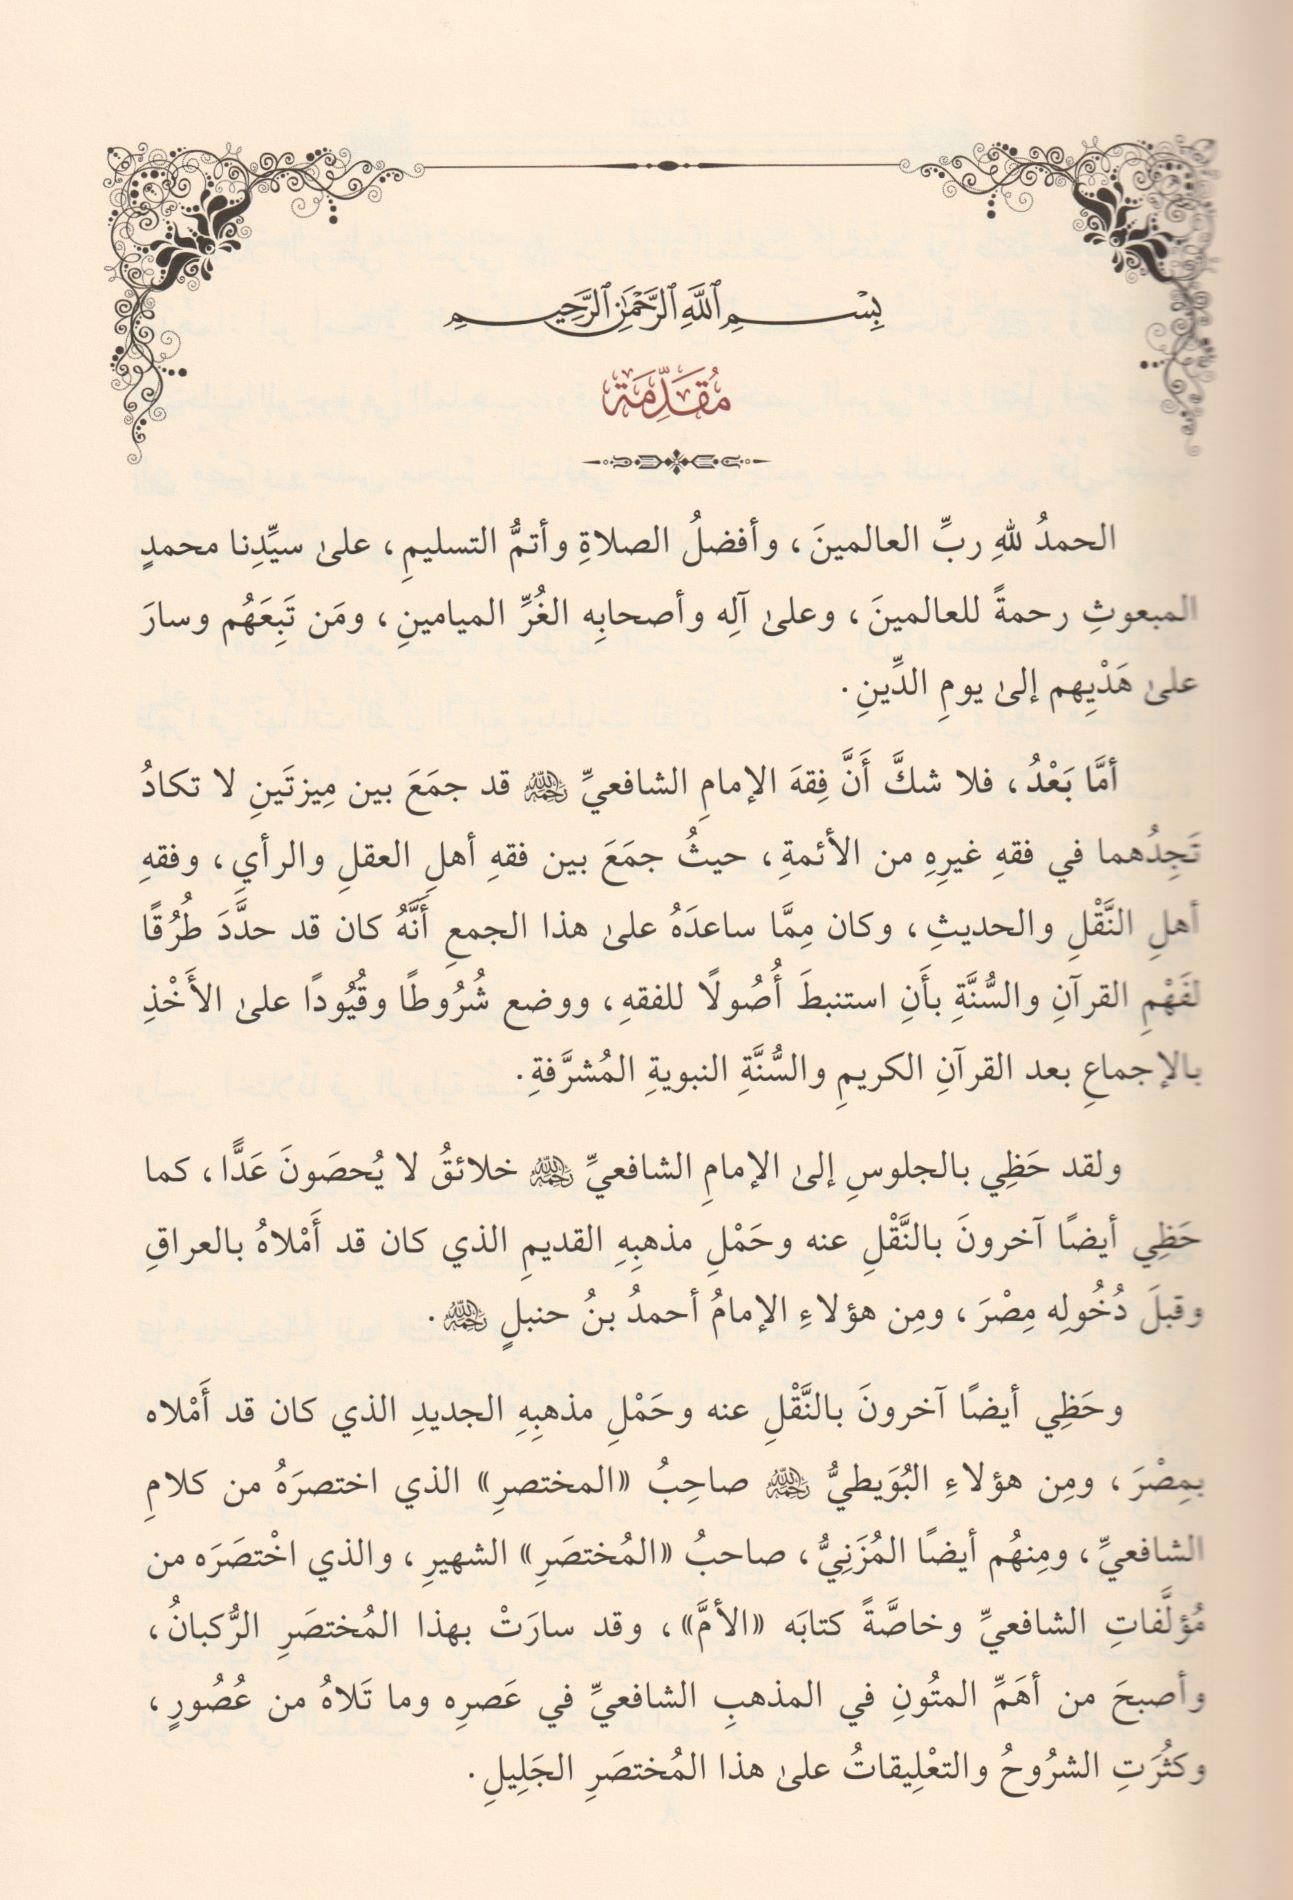 بِسْمِ ٱللَّهِ ٱلرَّحْمَٰنِ ٱلرَّحِيمِ
مُقَدِّمَة
الحمدُ للهِ ربِّ العالمينَ، وأفضلُ الصلاةِ وأتمُّ التسليمِ، علىٰ سيِّدِنا محمدٍ
المبعوثِ رحمةً للعالمينَ، وعلىٰ آلِه وأصحابِه الغُرِّ الميامينِ، ومَن تَبِعَهُم وسارَ
علىٰ هَدْيِهم إلىٰ يومِ الدِّينِ.
أمَّا بَعْدُ، فلا شكَّ أَنَّ فِقهَ الإمامِ الشافعيِّ رَحِمَهُ اللَّهُ قد جمَعَ بين مِيزتَينِ لا تكادُ
تَجِدُهما في فقهِ غيرِهِ من الأئمةِ، حيثُ جمَعَ بين فقهِ أهلِ العقلِ والرأيِ، وفقهِ
أهلِ النَّقْلِ والحديثِ، وكان مِمَّا ساعدَهُ علىٰ هذا الجمعِ أَنَّهُ كان قد حدَّدَ طُرُقًا
لفَهْمِ القرآنِ والسُّنَّةِ بأَنِ استنبطَ أُصُولًا للفقهِ، ووضع شُرُوطًا وقُيُودًا علىٰ الأَخْذِ
بالإجماعِ بعد القرآنِ الكريمِ والسُّنَّةِ النبويةِ المُشرَّفةِ.
ولقد حَظِي بالجلوسِ إلىٰ الإمامِ الشافعيِّ رَحِمَهُ اللَّهُ خلائقُ لا يُحصَونَ عَدًّا، كما
حَظِي أيضًا آخرونَ بالنَّقْلِ عنه وحَمْلِ مذهبِهِ القديمِ الذي كان قد أَمْلاهُ بالعراقِ
وقبلَ دُخُولِه مِصْرَ، ومِن هؤلاءِ الإمامُ أحمدُ بنُ حنبلٍ رَحِمَهُ اللَّهُ.
وحَظِي أيضًا آخرونَ بالنَّقْلِ عنه وحَمْلِ مذهبِهِ الجديدِ الذي كان قد أَمْلاه
بمِصْرَ، ومِن هؤلاءِ البُوَيطيُّ رَحِمَهُ اللَّهُ صاحِبُ «المختصرِ» الذي اختصرَهُ من كلامِ
الشافعيِّ، ومِنهُم أيضًا المُزَنِيُّ، صاحبُ «المُختصَرِ» الشهيرِ، والذي اخْتصَرَه من
مُؤلَّفاتِ الشافعيِّ وخاصَّةً كتابَه «الأمَّ»، وقد سارَتْ بهذا المُختصَرِ الرُّكبانُ،
وأصبحَ من أهَمِّ المتُونِ في المذهبِ الشافعيِّ في عَصرِه وما تَلاهُ من عُصُورٍ،
وكثُرَتِ الشرُوحُ والتعْلِيقاتُ علىٰ هذا المُختصَرِ الجَلِيلِ.